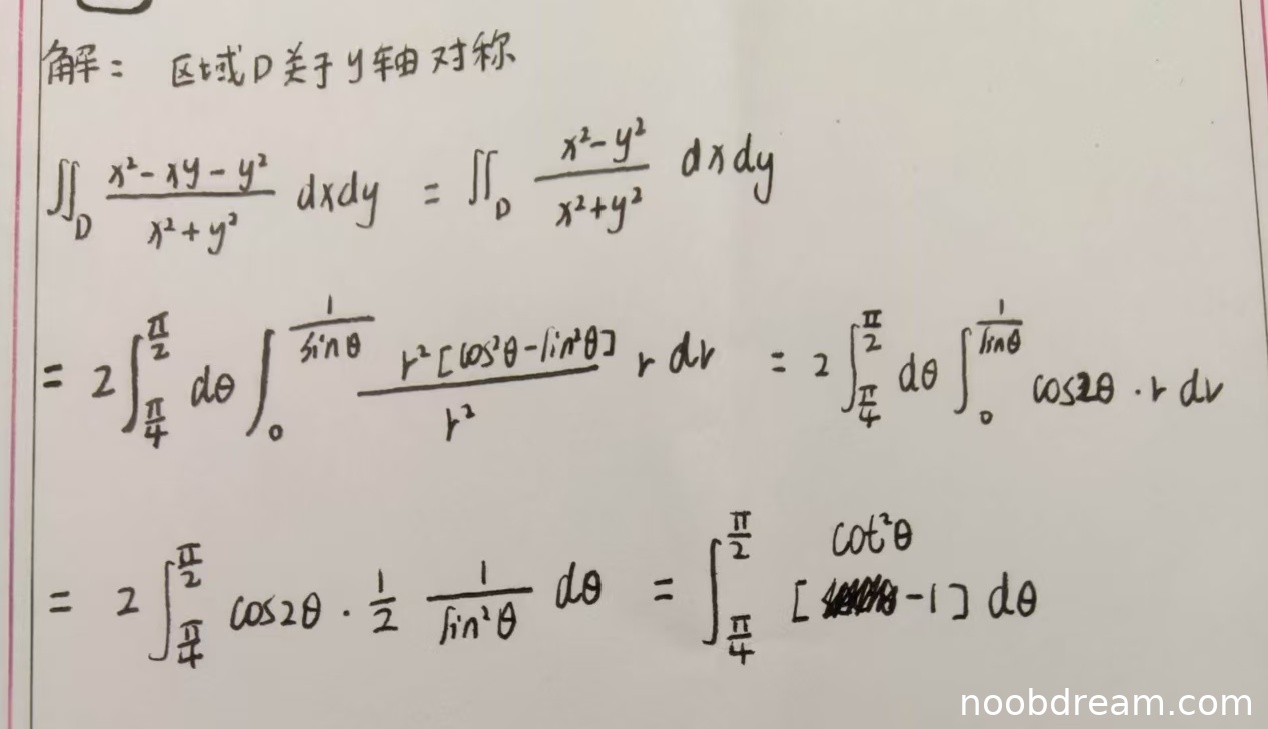 解： 区域D关于y轴对称
∬_D (x²-xy-y²)/(x²+y²) dxdy = ∬_D (x²-y²)/(x²+y²) dxdy
= 2∫_{π/4}^{π/2} dθ ∫_0^{1/sinθ} r²[cos²θ-sin²θ]/r² r dr = 2∫_{π/4}^{π/2} dθ ∫_0^{1/sinθ} cos2θ · r dr
= 2∫_{π/4}^{π/2} cos2θ · 1/2 1/sin²θ dθ = ∫_{π/4}^{π/2} [cot²θ-1] dθ
noobdream.com